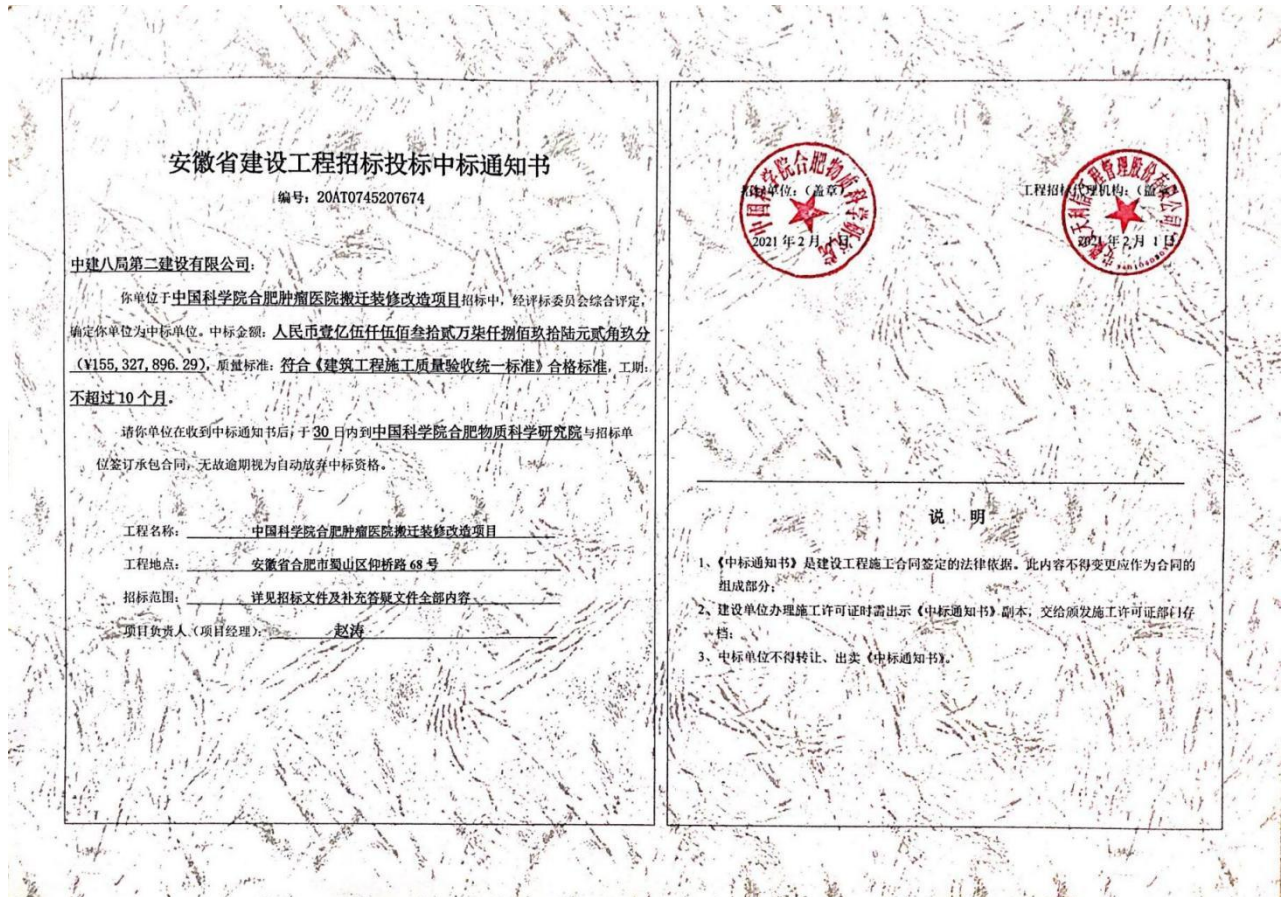 安徽省建设工程招标投标中标通知书
编号：20AT0745207674
中建八局第二建设有限公司：
你单位于中国科学院合肥肿瘤医院搬迁装修改造项目招标中，经评标委员会综合评定，
确定你单位为中标单位。中标金额：人民币壹亿伍仟伍佰叁拾贰万柒仟捌佰玖拾陆元贰角玖分
（¥155,327,896.29），质量标准：符合《建筑工程施工质量验收统一标准》合格标准，工期：
不超过 10 个月。
请你单位在收到中标通知书后，于 30 日内到中国科学院合肥物质科学研究院与招标单
位签订承包合同，无故逾期视为自动放弃中标资格。
工程名称：中国科学院合肥肿瘤医院搬迁装修改造项目
工程地点：安徽省合肥市蜀山区仰桥路 68 号
招标范围：详见招标文件及补充答疑文件全部内容
项目负责人（项目经理）：赵涛
单位：（盖章）
中国科学院合肥物质科学研究院
2021 年 2 月 1 日
工程招标代理机构：（盖章）
安徽天利信工程管理股份有限公司
2021 年 2 月 1 日
说 明
1、《中标通知书》是建设工程施工合同签定的法律依据。此内容不得变更应作为合同的
组成部分；
2、建设单位办理施工许可证时需出示《中标通知书》副本，交给颁发施工许可证部门存
档；
3、中标单位不得转让、出卖《中标通知书》。